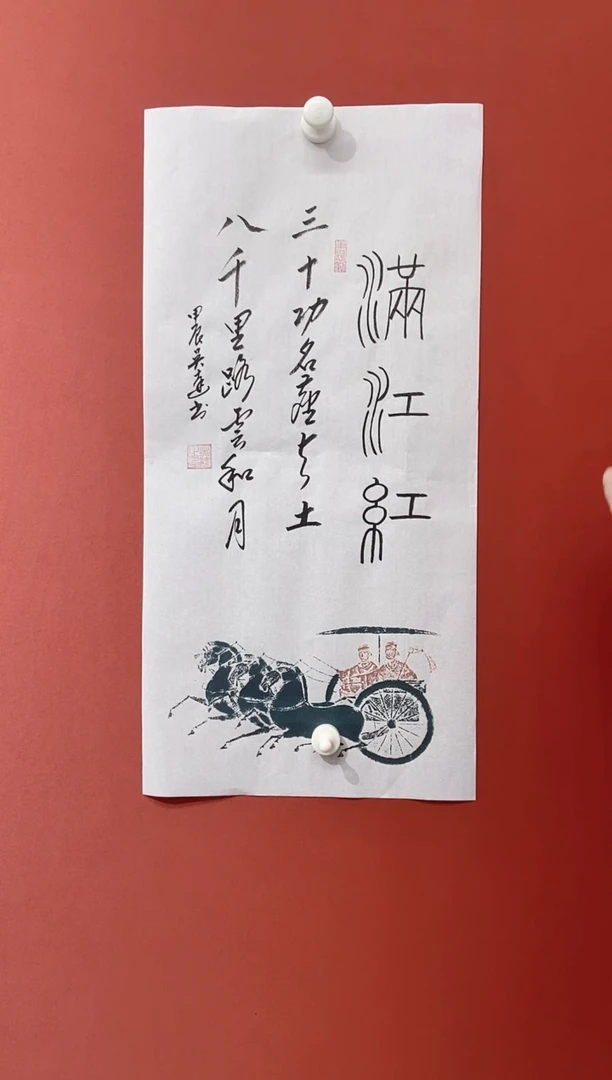 滿江紅
三十功名塵與土
八千里路雲和月
甲辰吴逵书